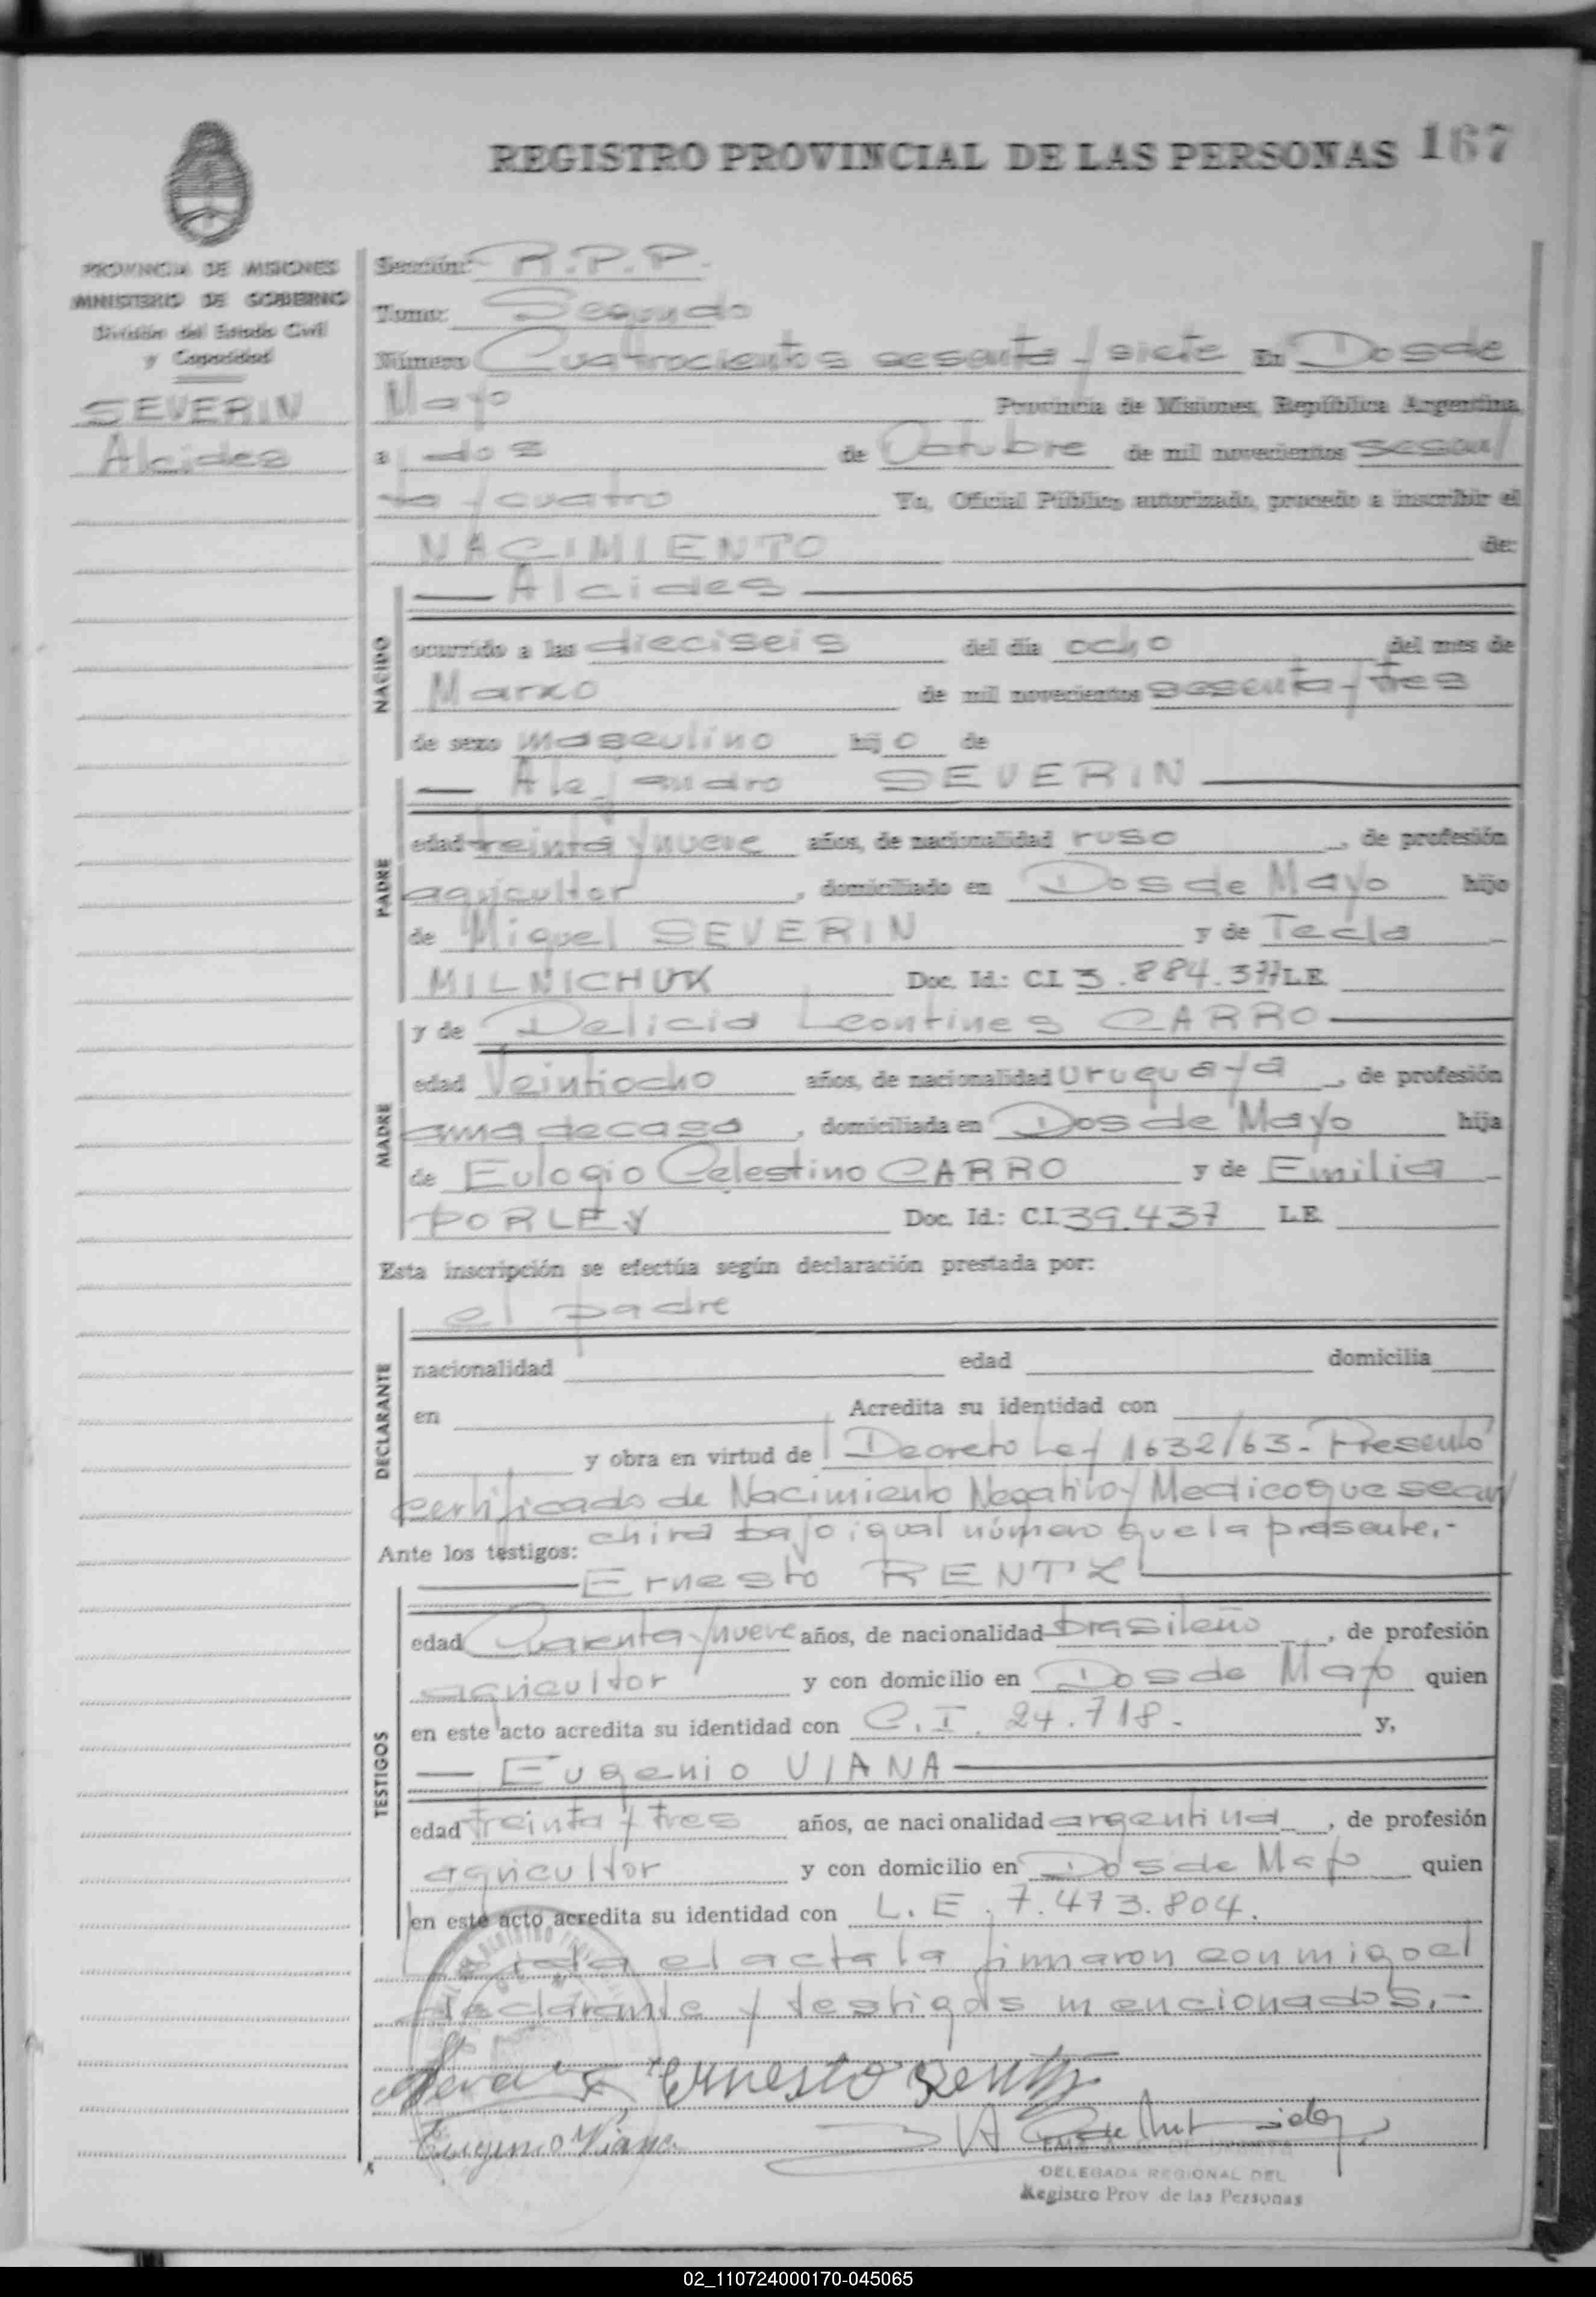 REGISTRO PROVINCIAL DE LAS PERSONAS 167
PROVINCIA DE MISIONES
MINISTERIO DE GOBIERNO
División del Estado Civil
y Capacidad
SEVERIN
Alcides
Sección: R.P.P.
Tomo: Segundo
Número Cuatrocientos sesenta y siete En Dos de
Mayo Provincia de Misiones, República Argentina,
a dos de Octubre de mil novecientos sesen/
ta y cuatro Yo, Oficial Público autorizado, procedo a inscribir el
NACIMIENTO de:
NACIDO
Alcides
ocurrido a las dieciseis del día ocho del mes de
Marzo de mil novecientos sesenta y tres
de sexo masculino hijo de
PADRE
Alejandro SEVERIN
edad treinta y nueve años, de nacionalidad ruso, de profesión
agricultor, domiciliado en Dos de Mayo hijo
de Miguel SEVERIN y de Tecla
MILNICHUK Doc. Id.: C.I. 3.884.377 L.E.
MADRE
y de Delicia Leontines CARRO
edad Veintiocho años, de nacionalidad Uruguaya, de profesión
ama de casa, domiciliada en Dos de Mayo hija
de Eulogio Celestino CARRO y de Emilia
PORLEY Doc. Id.: C.I. 39.437 L.E.
Esta inscripción se efectúa según declaración prestada por:
DECLARANTE
el padre
nacionalidad edad domicilia
en Acredita su identidad con
y obra en virtud de Decreto Ley 1632/63.- Presento
certificado de Nacimiento Negativo y Medico que se ar/
chira bajo igual número que la presente.-
Ante los testigos:
TESTIGOS
Ernesto RENTZ
edad Cuarenta y nueve años, de nacionalidad brasileño, de profesión
agricultor y con domicilio en Dos de Mayo quien
en este acto acredita su identidad con C.I. 24.718.- y,
Eugenio VIANA
edad treinta y tres años, de nacionalidad argentina, de profesión
agricultor y con domicilio en Dos de Mayo quien
en este acto acredita su identidad con L.E. 7.473.804.
Leida el acta la firmaron conmigo el
declarante y testigos mencionados.-
Ernesto Rentz
Eugenio Viana
DELEGADA REGIONAL DEL
Registro Prov. de las Personas
02_110724000170-045065